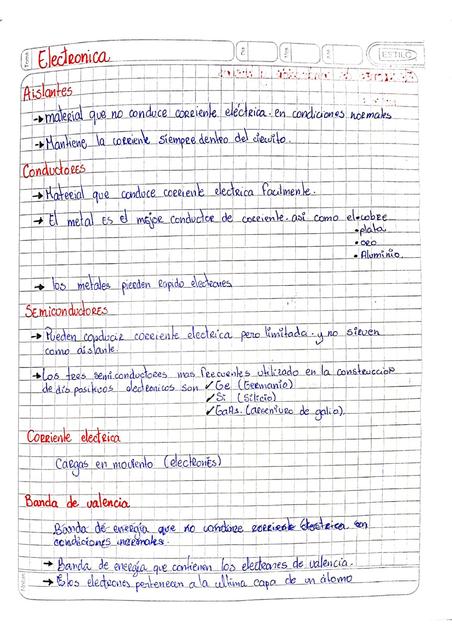 Tema
Electronica
Día
Mes
Año
ESTILO
Aislantes
→ material que no conduce corriente eléctrica. en condiciones normales
→ Mantiene la corriente siempre dentro del circuito.
Conductores
→ Material que conduce corriente electrica facilmente.
→ El metal es el mejor conductor de corriente. asi como el •cobre
•plata
•oro
•Aluminio.
→ los metales pierden rapido electrones
Semiconductores
→ Pueden conducir corriente electrica pero limitada. y no sirven
como aislante.
→ Los tres semiconductores mas frecuentes utilizado en la construccion
de dispositivos electronicos son ✓ Ge (Germanio)
✓ Si (Silicio)
✓ GaAs. (arseniuro de galio).
Corriente electrica
Cargas en moviento (electrones)
Banda de valencia
Banda de energía que no conduce corriente electrica en
condiciones normales.
→ Banda de energía que contienen los electrones de valencia.
→ Estos electrones pertenecen a la ultima capa de un átomo